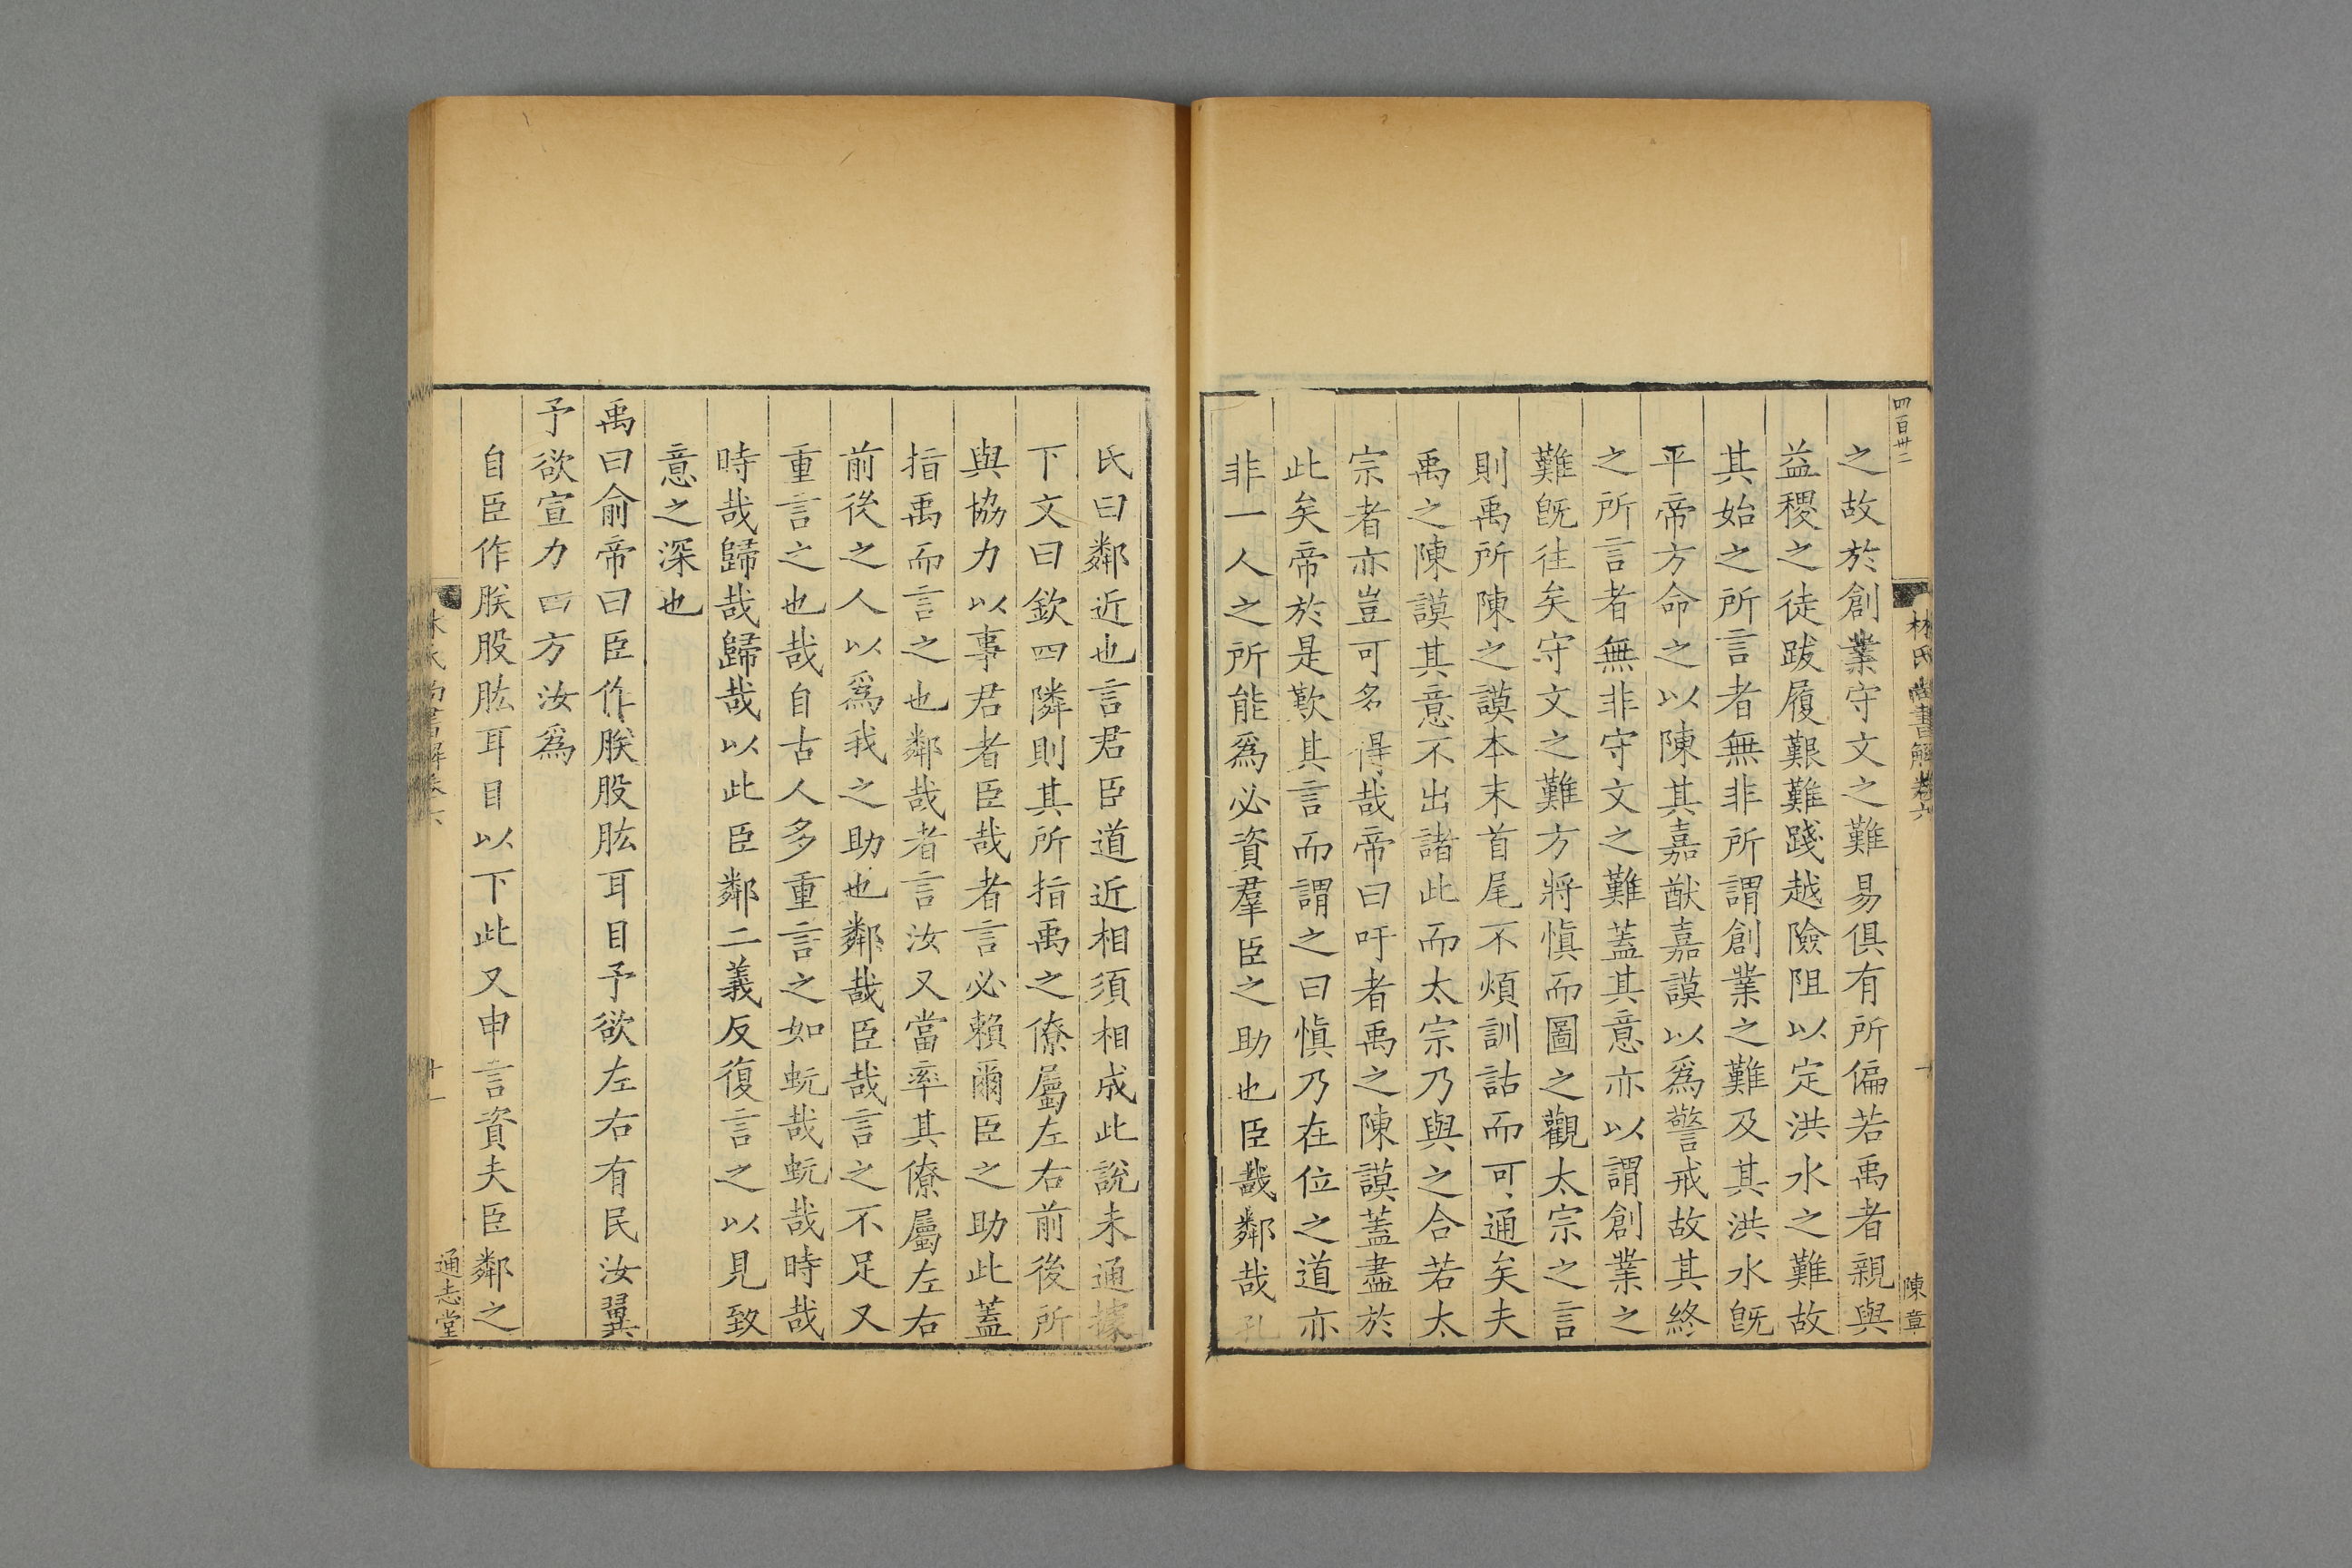 四百卅二
林氏尚書解卷六
陳章
之故於創業守文之難易俱有所偏若禹者親與
益稷之徒跋履艱難踐越險阻以定洪水之難故
其始之所言者無非所謂創業之難及其洪水旣
平帝方命之以陳其嘉猷嘉謨以爲警戒故其終
之所言者無非守文之難蓋其意亦以謂創業之
難旣往矣守文之難方將愼而圖之觀太宗之言
則禹所陳之謨本末首尾不煩訓詁而可通矣夫
禹之陳謨其意不出諸此而太宗乃與之合若太
宗者亦豈可名得哉帝曰吁者禹之陳謨蓋盡於
此矣帝於是歎其言而謂之曰愼乃在位之道亦
非一人之所能爲必資羣臣之助也臣哉鄰哉孔
氏曰鄰近也言君臣道近相須相成此說未通據
下文曰欽四隣則其所指禹之僚屬左右前後所
與協力以事君者臣哉者言必賴爾臣之助此蓋
指禹而言之也鄰哉者言汝又當率其僚屬左右
前後之人以爲我之助也鄰哉臣哉言之不足又
重言之也哉自古人多重言之如蚖哉蚖哉時哉
時哉歸哉歸哉以此臣鄰二義反復言之以見致
意之深也
禹曰俞帝曰臣作朕股肱耳目予欲左右有民汝翼
予欲宣力四方汝爲
自臣作朕股肱耳目以下此又申言資夫臣鄰之
林氏尚書解卷六
十一
通志堂